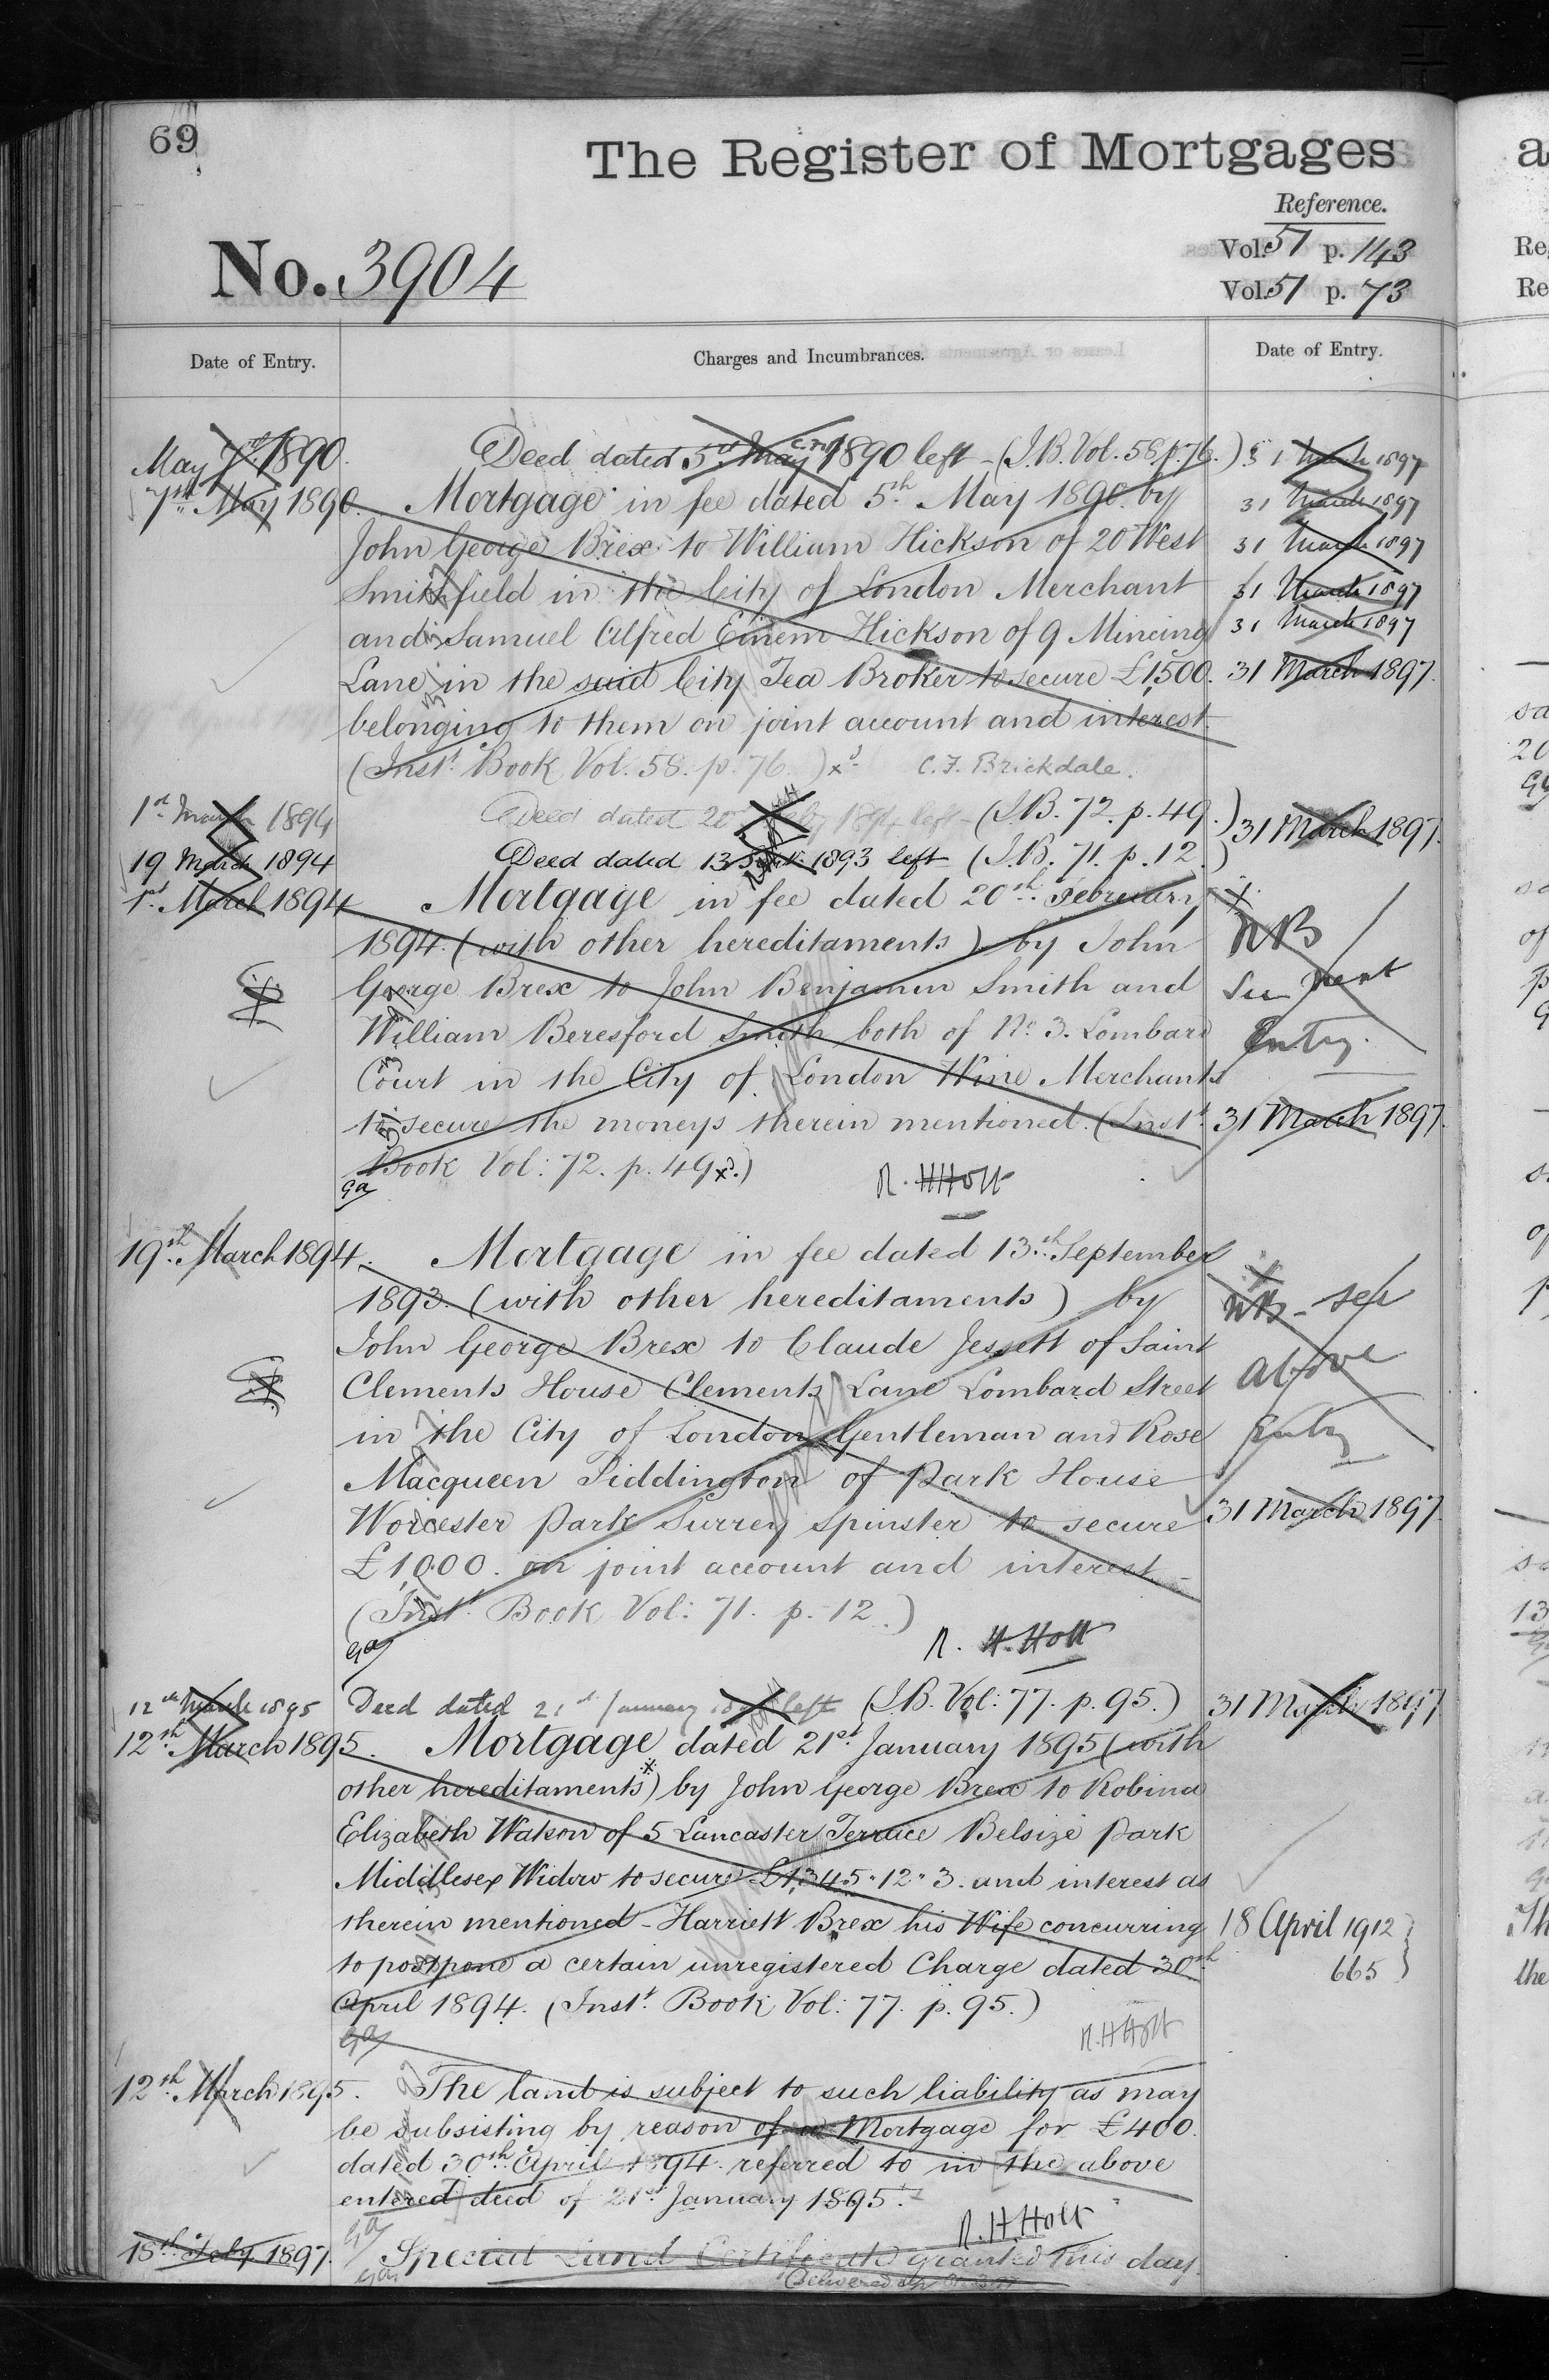 69
The Register of Mortgages
Reference.
No. 3904
Vol. 51 p. 143
Vol. 51 p. 73
Date of Entry.
Charges and Incumbrances.
Date of Entry.
May 1890.
Deed dated 5th May 1890 left - (I.B. Vol. 58. p. 76.)
31 March 1897
7th May 1890.
Mortgage in fee dated 5th May 1890. by
31 March 1897
John George Brex to William Hickson of 20 West
31 March 1897
Smithfield in the City of London Merchant
31 March 1897
and Samuel Alfred Einem Hickson of 9 Mincing
31 March 1897
Lane in the said City Tea Broker to secure £1,500.
31 March 1897.
belonging to them on joint account and interest.
(Inst. Book Vol. 58. p. 76.) xd C. F. Brickdale.
1st March 1894
Deed dated 20 1894 left - (I.B. 72. p. 49.)
31 March 1897.
19 March 1894
Deed dated 13 Sept. 1893 left (I.B. 71. p. 12.)
1st March 1894
Mortgage in fee dated 20th February
1894. (with other hereditaments) by John
NB
George Brex to John Benjamin Smith and
See Next
William Beresford Smith both of No. 3. Lombard
Entry.
Court in the City of London Wine Merchants
to secure the moneys therein mentioned. (Inst.
31 March 1897.
Book Vol: 72. p. 49 xd.)
ga
R. H Holt
19th March 1894.
Mortgage in fee dated 13th September
1893. (with other hereditaments) by
NB - see
John George Brex to Claude Jessett of Saint
above
Clements House Clements Lane Lombard Street
in the City of London Gentleman and Rose
Entry
Macqueen Piddington of Park House
Worcester Park Surrey Spinster to secure
31 March 1897.
£1,000. on joint account and interest -
(Inst. Book Vol: 71. p. 12.)
ga
R. H. Holt
12th March 1895
Deed dated 21st January left (I.B. Vol: 77. p. 95.)
31 March 1897
12th March 1895.
Mortgage dated 21st January 1895 (with
other hereditaments) by John George Brex to Robina
Elizabeth Watson of 5 Lancaster Terrace Belsize Park
Middlesex Widow to secure £1,345 " 12 " 3. and interest as
therein mentioned - Harriett Brex his Wife concurring
18 April 1912
to postpone a certain unregistered Charge dated 30th
665
April 1894. (Inst. Book Vol: 77. p. 95.)
ga
R. H Holt
12th March 1895.
The land is subject to such liability as may
be subsisting by reason of a Mortgage for £400.
dated 30th April 1894. referred to in the above
entered deed of 21st January 1895. -
ga
R. H. Holt
18th Feby. 1897.
Special Land Certificate granted this day.
ga
Delivered up